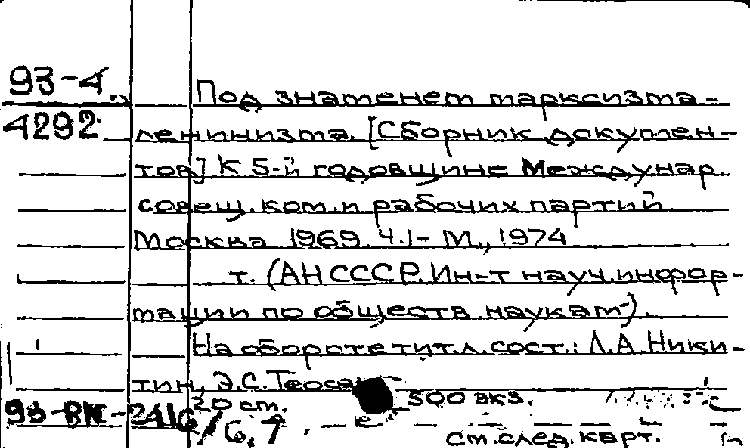 93-4
4292
Под знаменем марксизма-
ленинизма. [Сборник докумен-
тов] К 5-й годовщине Междунар.
совещ. ком. и рабочих партий
Москва 1969. Ч.1- М., 1974
т. (АН СССР. Ин-т науч. инфор-
мации по обществ. наукам).
На обороте тит. л. сост.: Л.А. Ники-
тин, Э.С.
20 см. 500 экз.
см. след. карт.